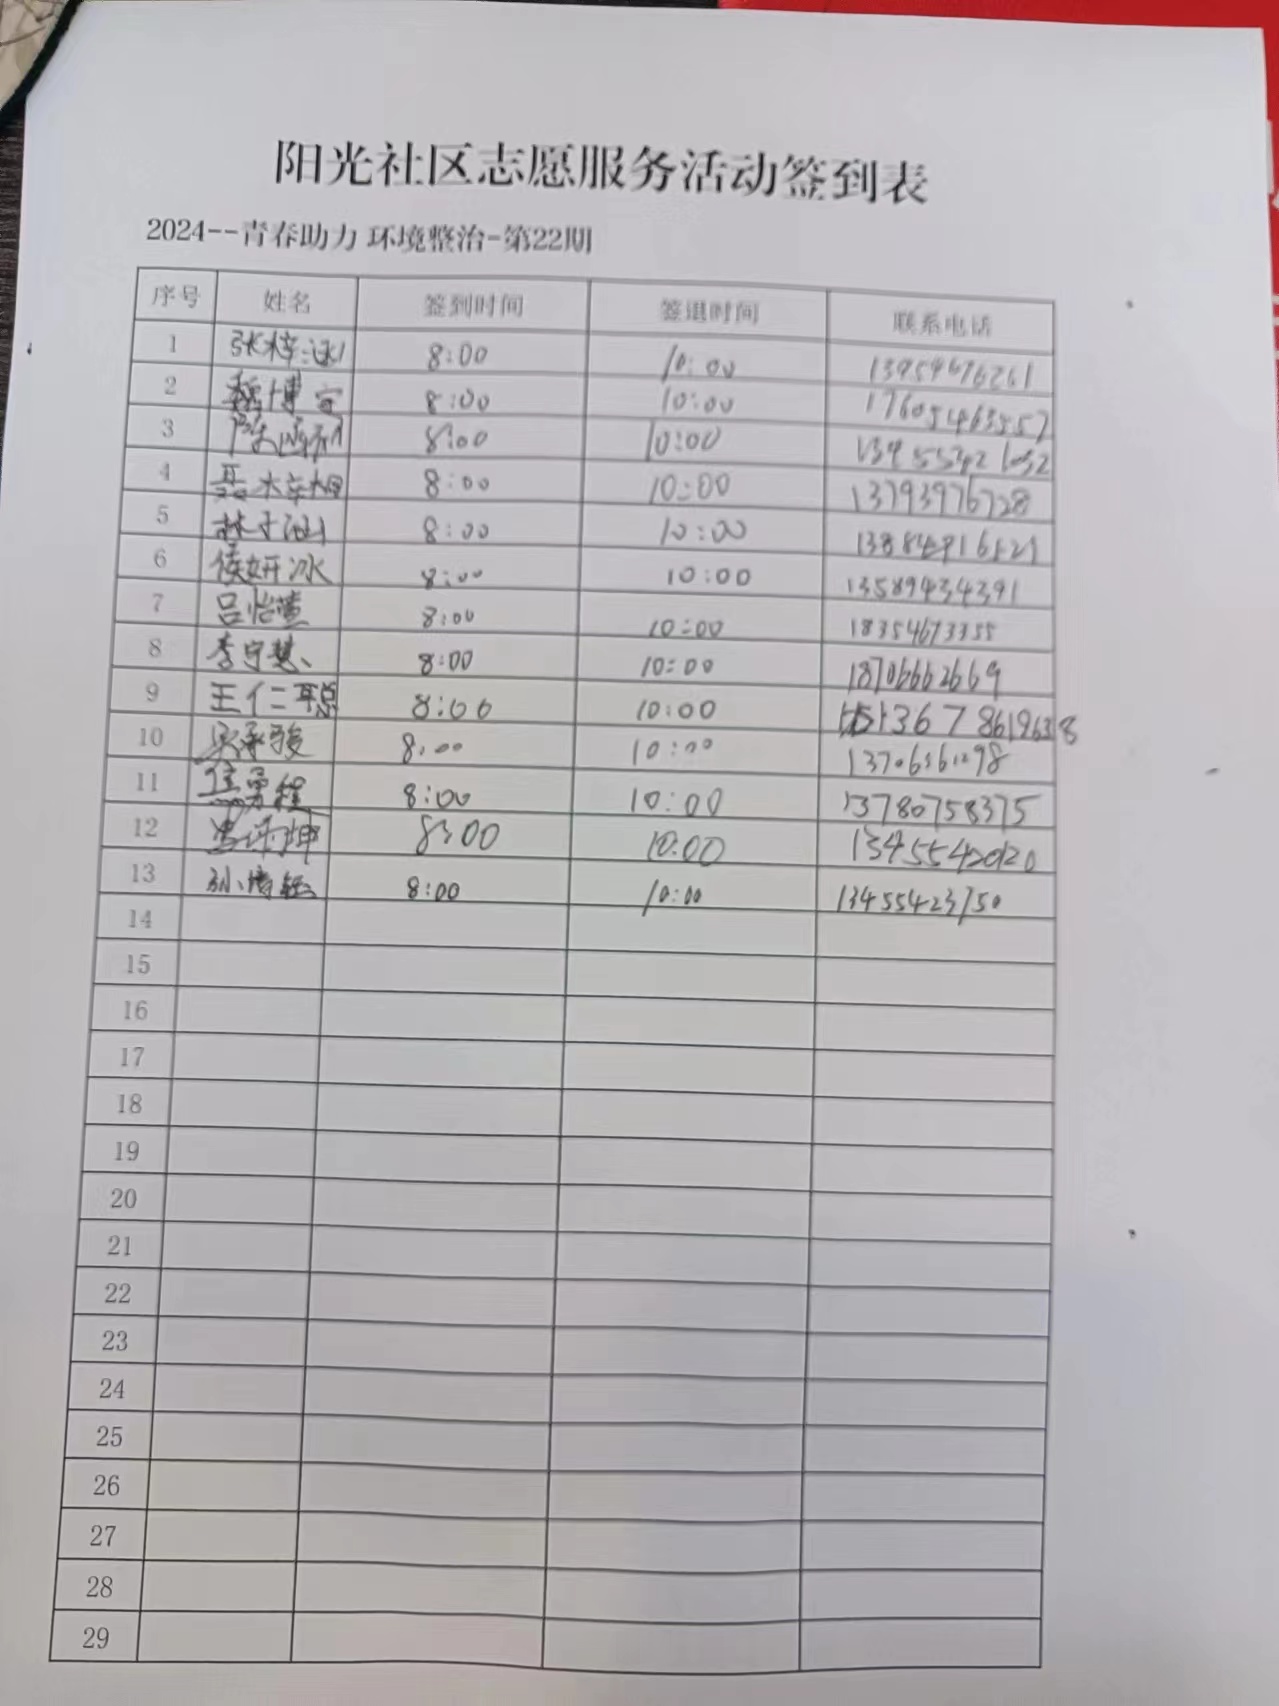 阳光社区志愿服务活动签到表
2024--青春助力 环境整治-第22期
序号 姓名 签到时间 签退时间 联系电话
1 张梓涵 8:00 10:00
2 魏博宇 8:00 10:00 17605463557
3 8:00 10:00
4 聂梓煜 8:00 10:00 13793976728
5 林子涵 8:00 10:00
6 侯妍冰 8:00 10:00 13589434391
7 吕怡萱 8:00 10:00 18354673355
8 李守慧 8:00 10:00 18706662669
9 王仁聪 8:00 10:00 13678619638
10 吴承骏 8:00 10:00
11 8:00 10:00 13780758375
12 8:00 10:00 13455420120
13 8:00 10:00 13455423750
14
15
16
17
18
19
20
21
22
23
24
25
26
27
28
29